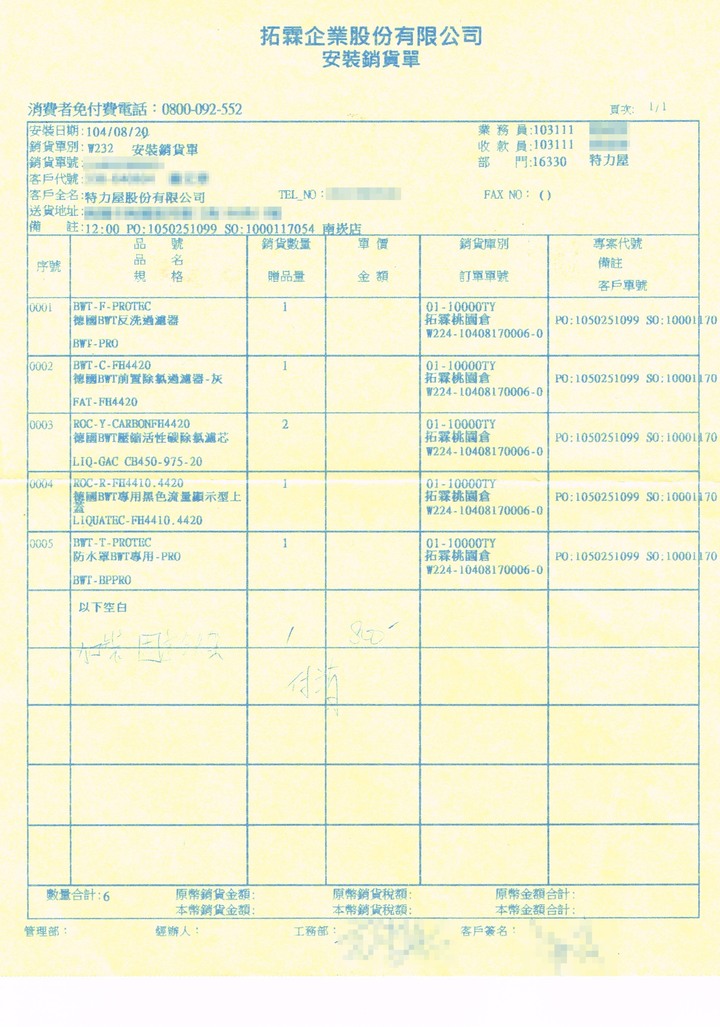 拓霖企業股份有限公司
安裝銷貨單
消費者免付費電話：0800-092-552
頁次： 1/1
安裝日期：104/08/20 業務員：103111
銷貨單別：W232 安裝銷貨單 收款員：103111
銷貨單號： 部門：16330 特力屋
客戶代號：
客戶全名：特力屋股份有限公司 TEL_NO： FAX NO：()
送貨地址：
備註：12:00 PO:1050251099 SO:1000117054 南崁店
序號 品號 銷貨數量 單價 銷貨庫別 專案代號
品名 備註
規格 贈品量 金額 訂單單號 客戶單號
0001 BWT-F-PROTEC 1 01-10000TY
德國BWT反洗過濾器 拓霖桃園倉 PO:1050251099 SO:10001170
BWF-PRO W224-10408170006-0
0002 BWT-C-FH4420 1 01-10000TY
德國BWT前置除氯過濾器-灰 拓霖桃園倉 PO:1050251099 SO:10001170
FAT-FH4420 W224-10408170006-0
0003 ROC-Y-CARBONFH4420 2 01-10000TY
德國BWT壓縮活性碳除氯濾芯 拓霖桃園倉 PO:1050251099 SO:10001170
LIQ-GAC CB450-975-20 W224-10408170006-0
0004 ROC-R-FH4410.4420 1 01-10000TY
德國BWT專用黑色流量顯示型上 拓霖桃園倉 PO:1050251099 SO:10001170
蓋
LIQUATEC-FH4410.4420 W224-10408170006-0
0005 BWT-T-PROTEC 1 01-10000TY
防水罩BWT專用-PRO 拓霖桃園倉 PO:1050251099 SO:10001170
BWT-BPPRO W224-10408170006-0
以下空白
1 800
數量合計：6 原幣銷貨金額： 原幣銷貨稅額： 原幣金額合計：
本幣銷貨金額： 本幣銷貨稅額： 本幣金額合計：
管理部： 經辦人： 工務部： 客戶簽名：